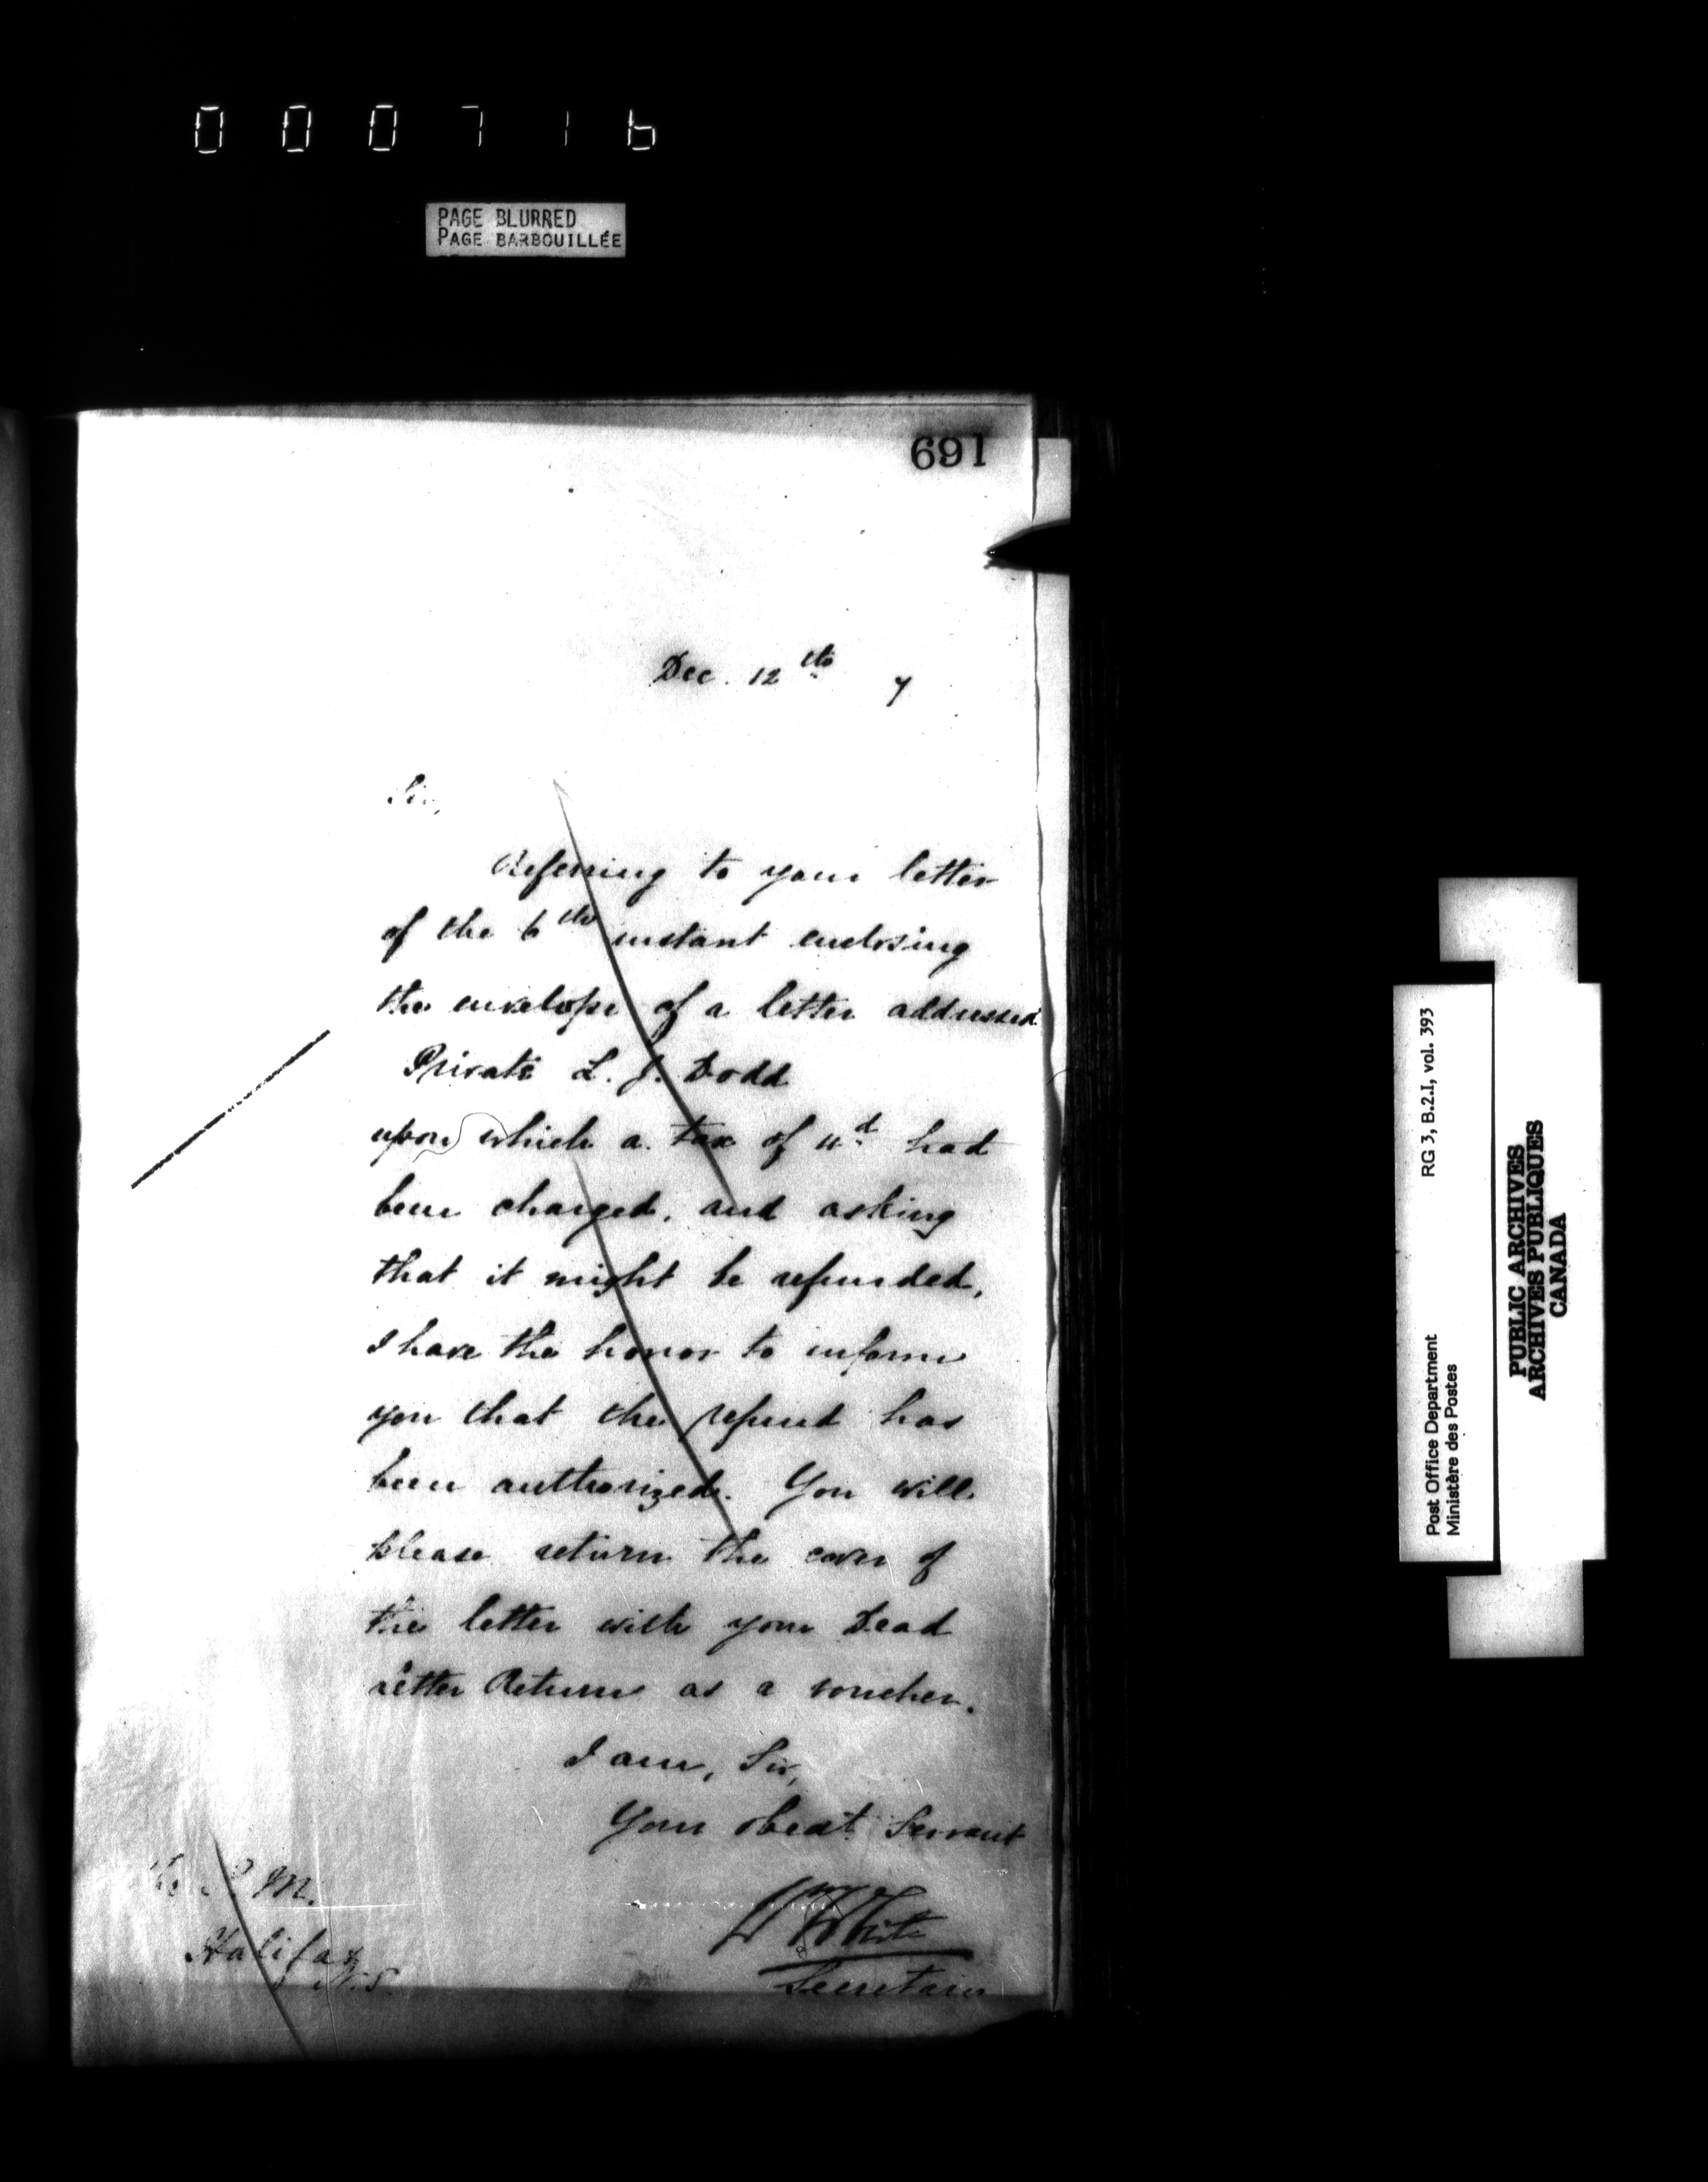 000716
PAGE BLURRED
PAGE BARBOUILLÉE
691
Dec. 12th 7
Sir,
Referring to your letter
of the 6th instant enclosing
the envelope of a letter addressed
Private L. J. Dodd
upon which a tax of 4d had
been charged, and asking
that it might be refunded,
I have the honor to inform
you that the refund has
been authorized. You will
please return the cover of
the letter with your Dead
Letter Return as a voucher.
I am, Sir,
Your obedt. Servant
Wm White
Secretary
The P. M.
Halifax
N.S.
Post Office Department RG 3, B.2.I, vol. 393
Ministère des Postes
PUBLIC ARCHIVES
ARCHIVES PUBLIQUES
CANADA